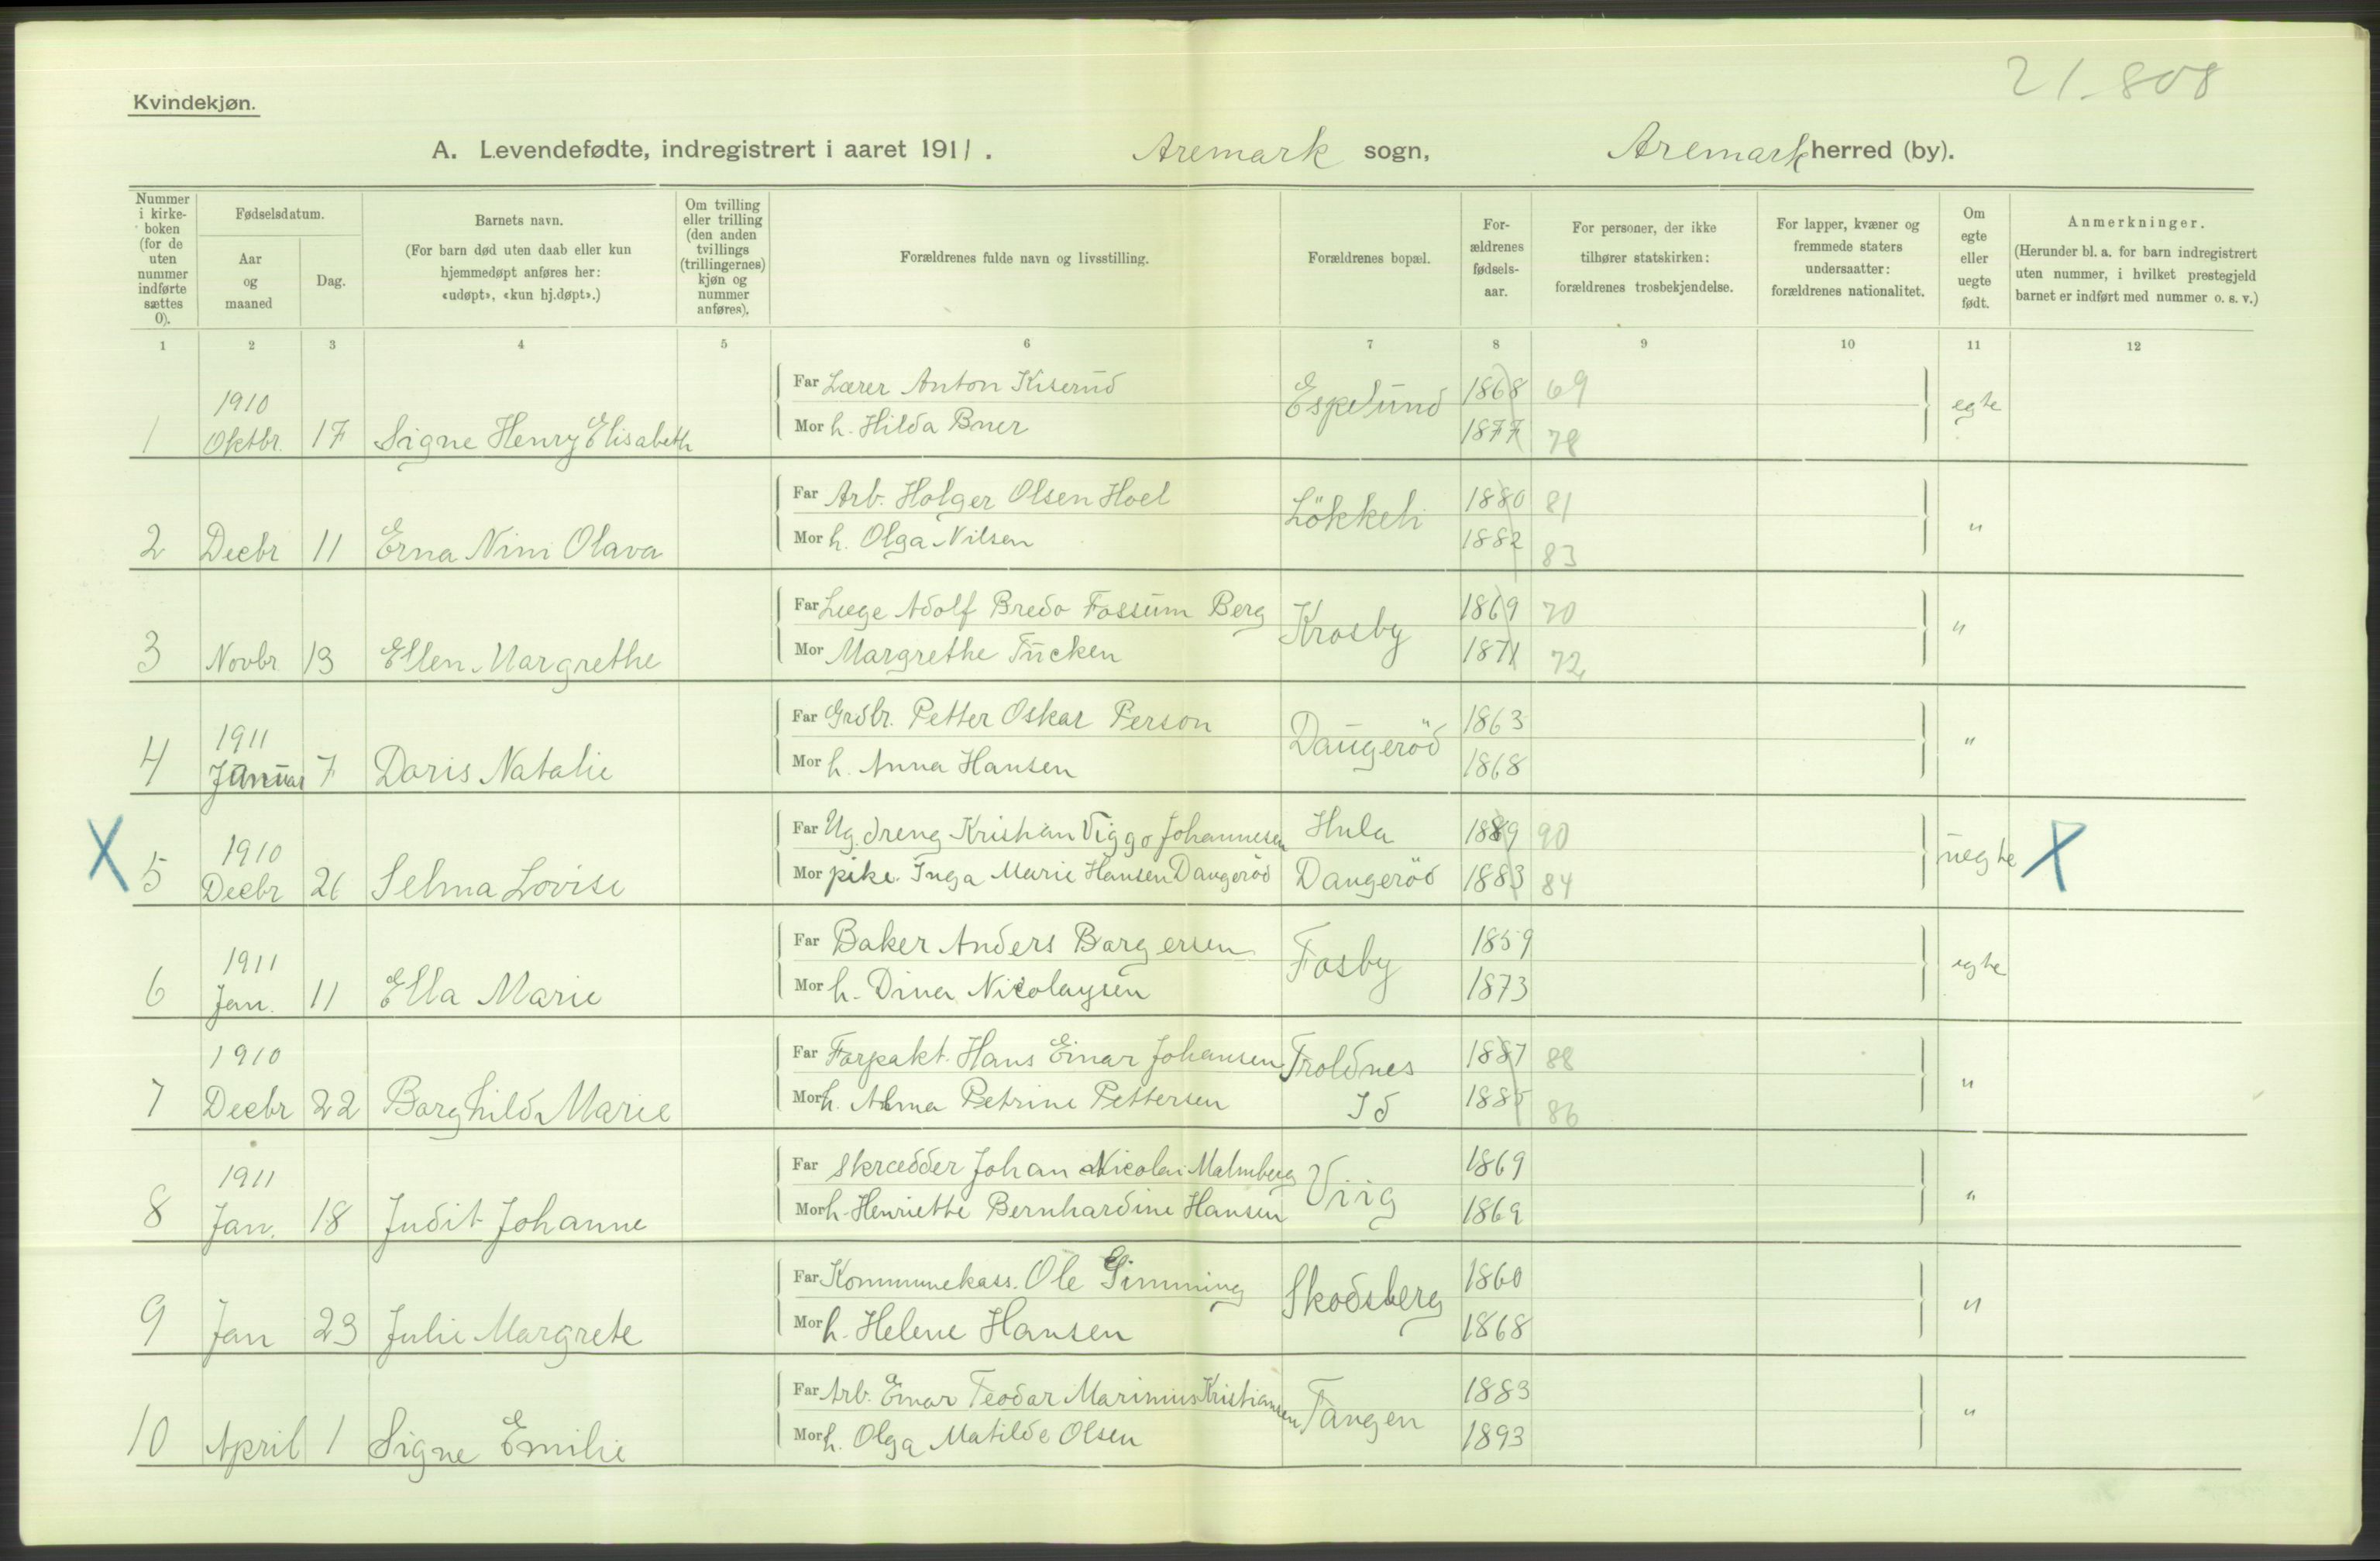 21-808
Kvindekjøn.
A. Levendefødte, indregistrert i aaret 1911. Aremark sogn, Aremark herred (by).
Nummer i kirke-boken (for de uten nummer indførte sættes 0).
Fødselsdatum.
Aar og maaned
Dag.
Barnets navn.
(For barn død uten daab eller kun hjemmedøpt anføres her: «udøpt», «kun hj.døpt».)
Om tvilling eller trilling (den anden tvillings (trillingernes) kjøn og nummer anføres).
Forældrenes fulde navn og livsstilling.
Forældrenes bopæl.
For-ældrenes fødsels-aar.
For personer, der ikke tilhører statskirken: forældrenes trosbekjendelse.
For lapper, kvæner og fremmede staters undersaatter: forældrenes nationalitet.
Om egte eller uegte født.
Anmerkninger.
(Herunder bl. a. for barn indregistrert uten nummer, i hvilket prestegjeld barnet er indført med nummer o. s. v.)
1 2 3 4 5 6 7 8 9 10 11 12
1 1910 Oktbr. 17 Signe Henry Elisabeth
Far Lærer Anton Kiserud Espelund 1868 69 egte
Mor h. Hilda Bner 1877 78
2 Decbr 11 Erna Nini Olava
Far Arb. Holger Olsen Hoel Lökkeli 1880 81 "
Mor h. Olga Nilsen 1882 83
3 Novbr 13 Ellen Margrethe
Far Læge Adolf Bredo Fossum Berg Krosby 1869 70 "
Mor Margrethe Tucken 1871 72
4 1911 Januar 7 Doris Natalie
Far Grdbr. Petter Oskar Person Daugeröd 1863 "
Mor h. Anna Hansen 1868
X 5 1910 Decbr 26 Selma Lovise
Far Ug. dreng Kristian Viggo Johannesen Hula 1889 90 uegte X
Mor pike. Inga Marie Hansen Daugeröd Daugeröd 1883 84
6 1911 Jan. 11 Ella Marie
Far Baker Anders Borgersen Fosby 1859 egte
Mor h. Dina Nicolaysen 1873
7 1910 Decbr 22 Borghild Marie
Far Forpakt. Hans Einar Johansen Troldnes 1887 88 "
Mor h. Alma Petrine Pettersen Id 1885 86
8 1911 Jan. 18 Judit Johanne
Far Skrædder Johan Nicolai Malmberg Viig 1869 "
Mor h. Henriette Bernhardine Hansen 1869
9 Jan 23 Julie Margrete
Far Kommunekass. Ole Gimming Skodsberg 1860 "
Mor h. Helene Hansen 1868
10 April 1 Signe Emilie
Far Arb. Einar Teodor Marinius Kristiansen Tangen 1883 "
Mor h. Olga Matilde Olsen 1893